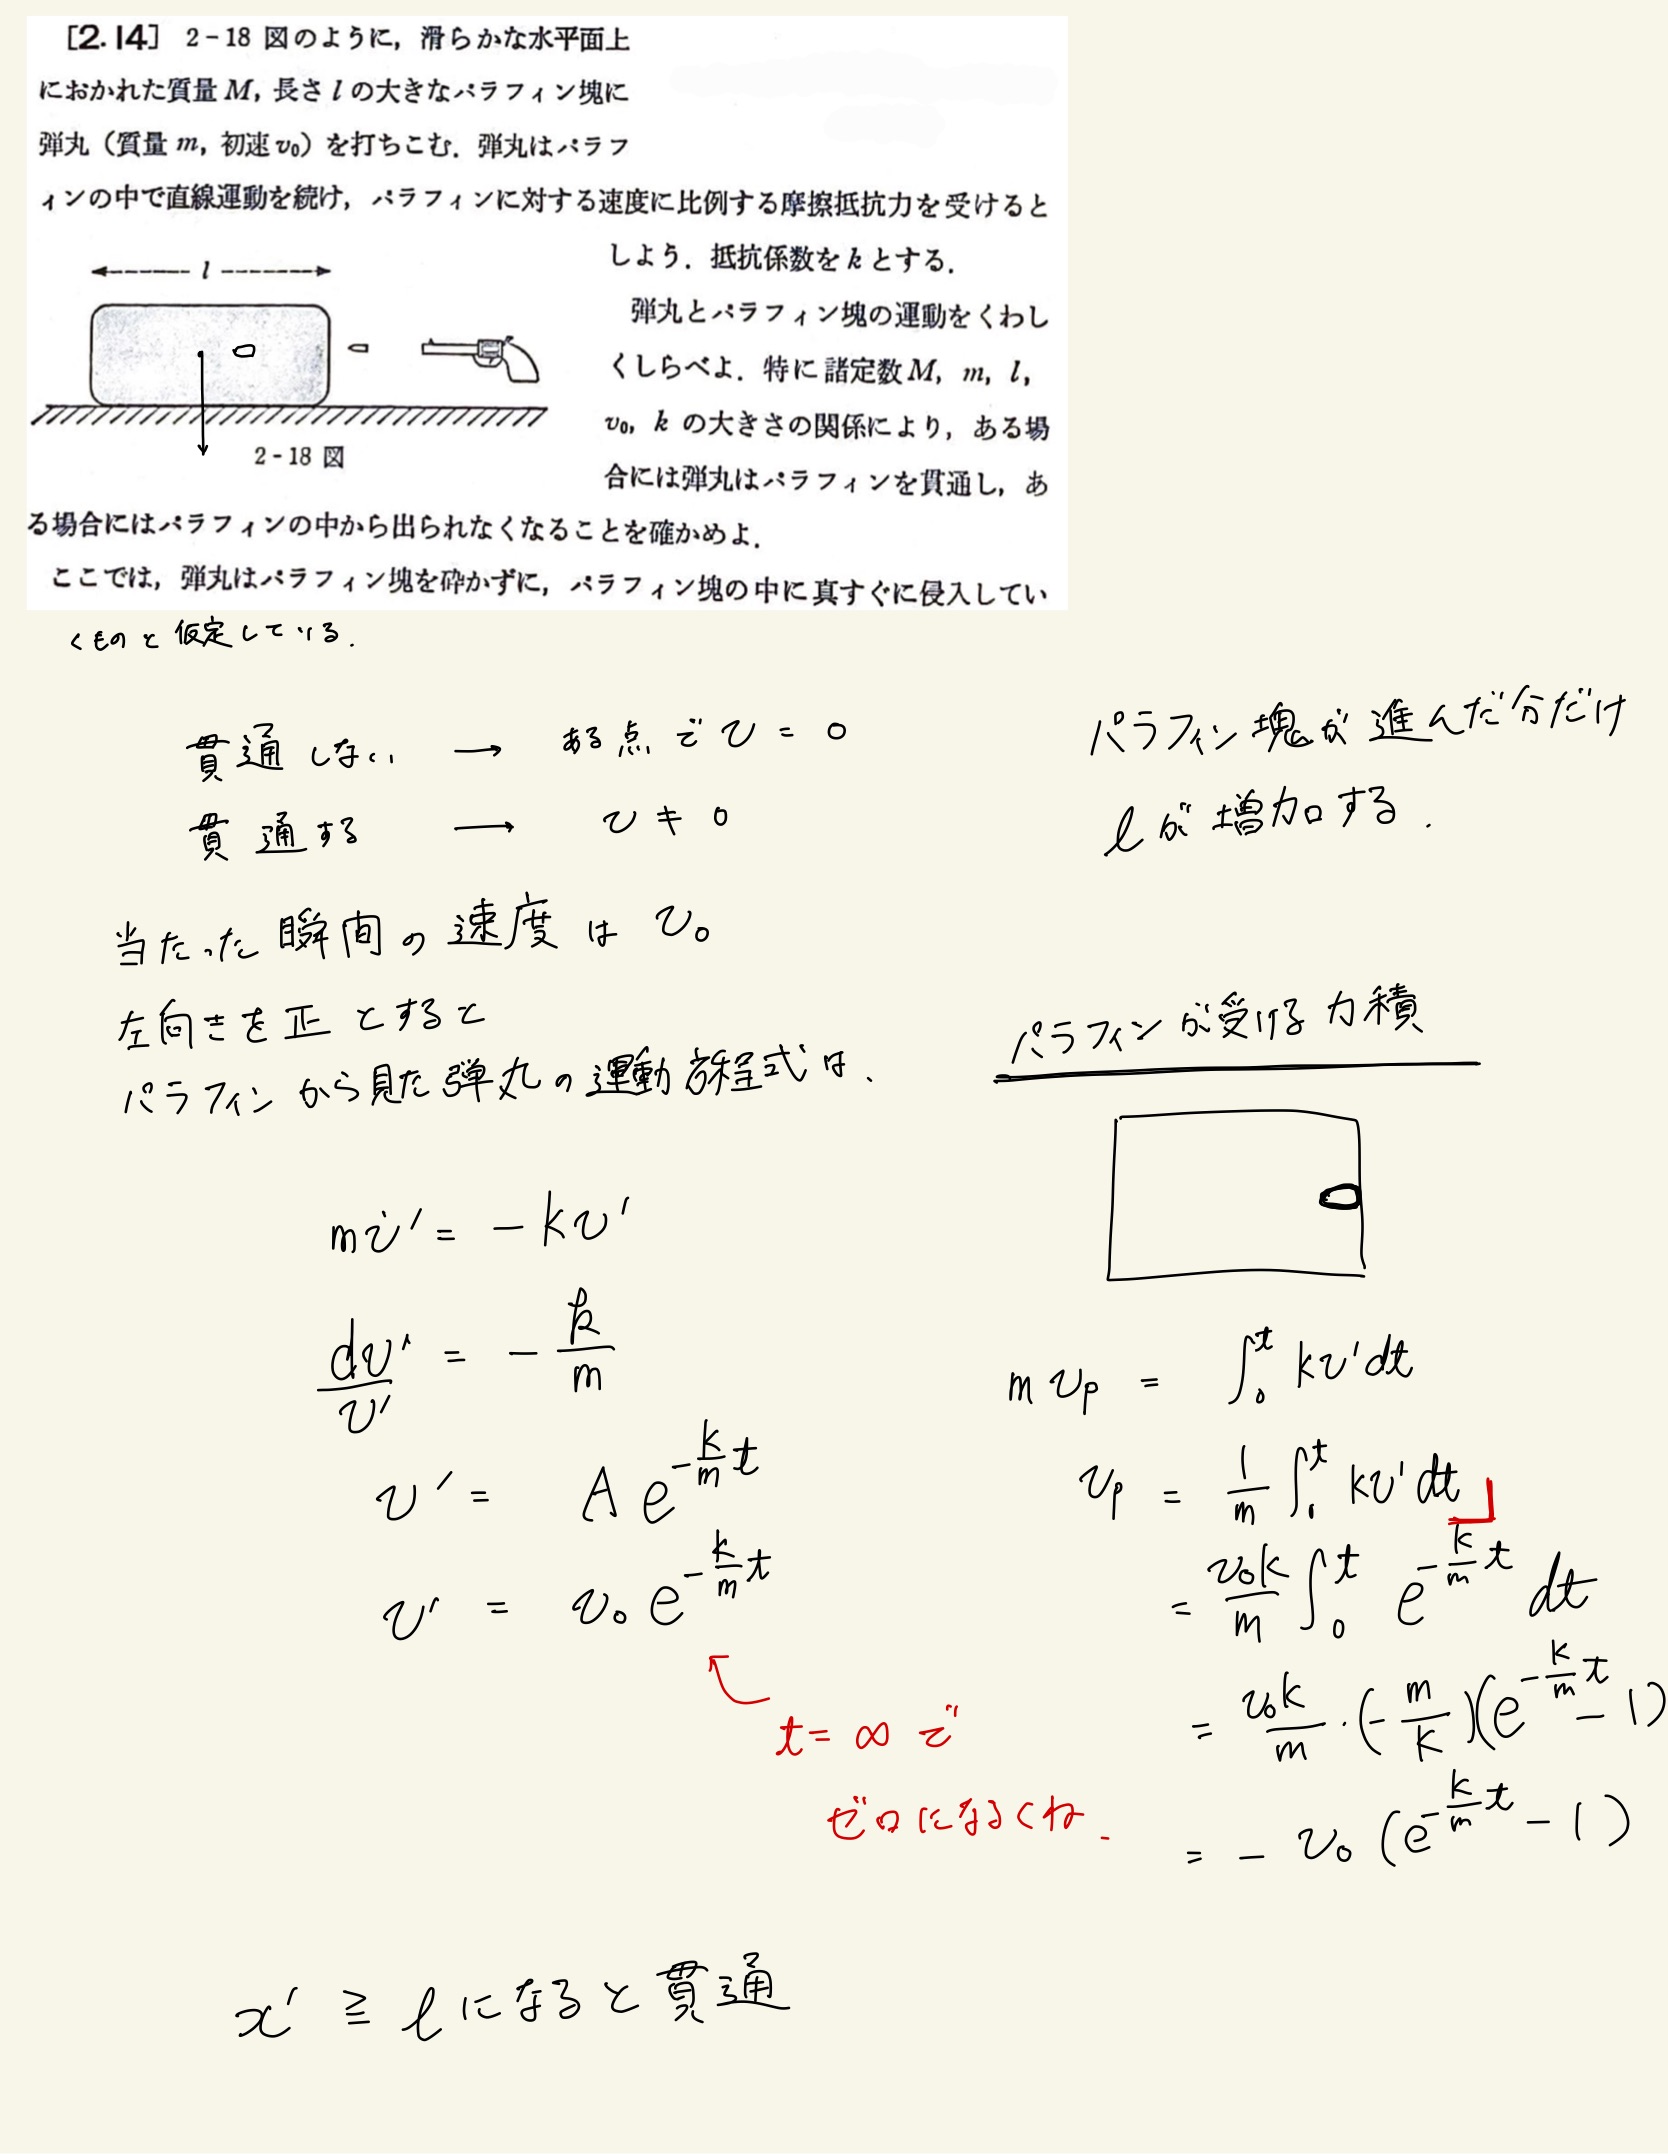 [2.14] 2-18 図のように，滑らかな水平面上
におかれた質量 M, 長さ l の大きなパラフィン塊に
弾丸（質量 m, 初速 v₀）を打ちこむ．弾丸はパラフ
ィンの中で直線運動を続け，パラフィンに対する速度に比例する摩擦抵抗力を受けると
しよう．抵抗係数を k とする．
l
弾丸とパラフィン塊の運動をくわし
くしらべよ．特に諸定数 M, m, l,
v₀, k の大きさの関係により，ある場
合には弾丸はパラフィンを貫通し，あ
2-18 図
る場合にはパラフィンの中から出られなくなることを確かめよ．
ここでは，弾丸はパラフィン塊を砕かずに，パラフィン塊の中に真すぐに侵入してい
くものと仮定している．
貫通しない → ある点で v = 0
貫通する → v ≠ 0
当たった瞬間の速度は v₀
左向きを正とすると
パラフィンから見た弾丸の運動方程式は、
mv̇' = -kv'
dv'/v' = -k/m
v' = A e^{-k/m t}
v' = v₀ e^{-k/m t}
t = ∞ で
ゼロになるくね．
x' ≧ l になると貫通
パラフィン塊が進んだ分だけ
l が増加する．
パラフィンが受ける力積
m v_p = ∫₀^t kv'dt
v_p = 1/m ∫₀^t kv'dt
= v₀k/m ∫₀^t e^{-k/m t} dt
= v₀k/m · (-m/k)(e^{-k/m t} - 1)
= - v₀ (e^{-k/m t} - 1)